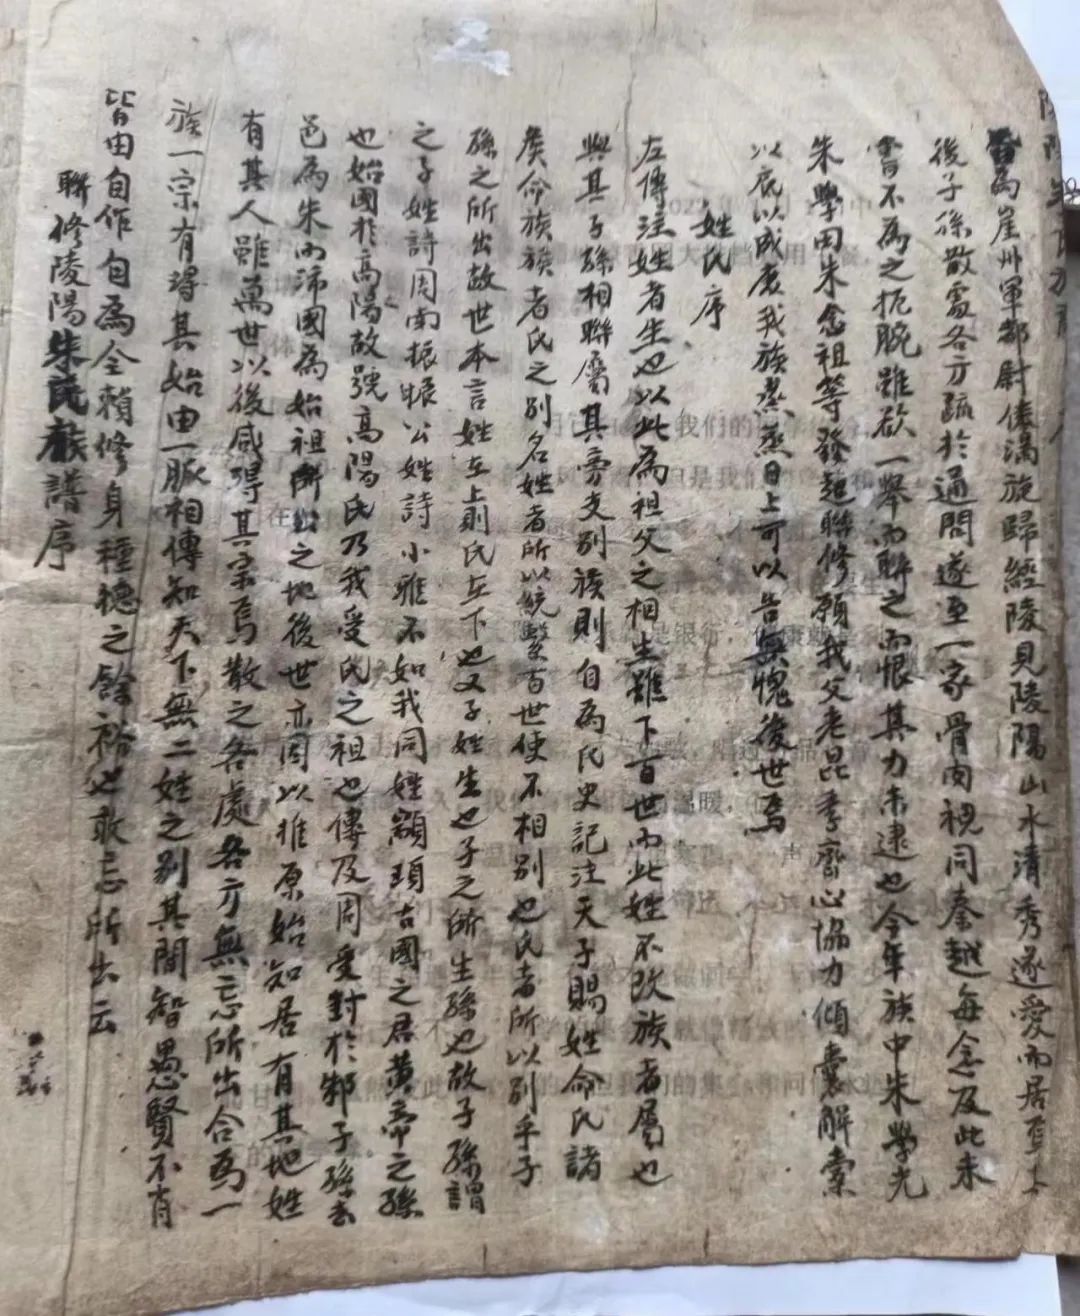 為崖州軍都尉後滿旋歸經陵見陵陽山水清秀遂愛而居
後子孫散處各方疏於通問遂至一家骨肉視同秦越每念及此未
嘗不為之扼腕雖欲一舉而聯之而恨其力未逮也今年族中朱學光
朱學田朱念祖等發起聯修願我父老昆季齊心協力傾囊解橐
以底以成庶我族烝烝日上可以告無愧後世焉
姓氏序
左傳注姓者生也以此為祖父之相生雖下百世而此姓不改族者屬也
與其子孫相聯屬其旁支別族則自為氏史記注天子賜姓命氏諸
侯命族族者氏之別名姓者所以統繫百世使不相別也氏者所以別乎子
孫之所出故世本言姓在上則氏在下也又子姓生也子之所生孫也故子孫謂
之子姓詩周南振振公姓詩小雅不如我同姓顓頊古國之君黃帝之孫
也始國於高陽故號高陽氏乃我受氏之祖也傳及周受封於邾子孫去
邑為朱而沛國為始祖所出之地後世亦因以推原始知居有其地姓
有其人雖萬世以後咸得其宗焉散之各處各方無忘所出合為一
族一宗有得其始由一脈相傳知天下無二姓之別其間智愚賢不肖
皆由自作自為全賴修身種德之餘裕也敢忘所出云
聯修陵陽朱氏族譜序